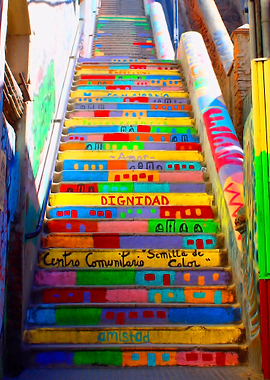 Amor
DIGNIDAD
Centro Comunitario "Semilla de
Color"
amistad